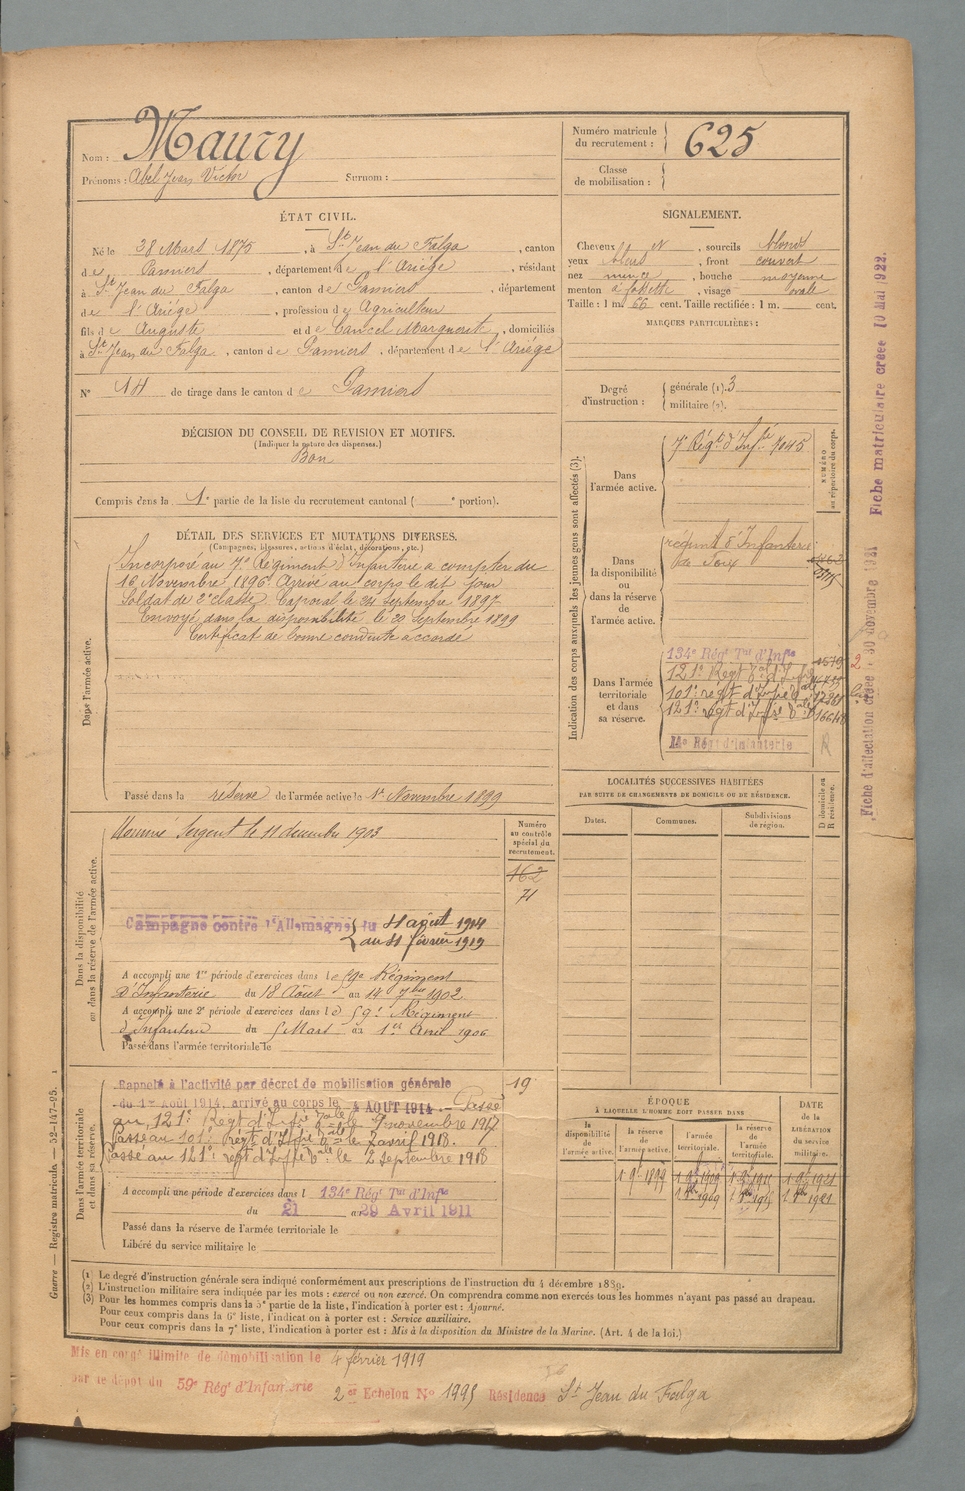 Nom : Maury
Prénoms : Abel Jean Victor Surnom :
Numéro matricule du recrutement : 625
Classe de mobilisation :
ÉTAT CIVIL.
Né le 28 Mars 1875, à St Jean du Falga, canton
de Pamiers, département de l'Ariége, résidant
à St Jean du Falga, canton de Pamiers, département
de l'Ariége, profession de Agriculteur
fils de Auguste et de Cancel Marguerit, domiciliés
à St Jean du Falga, canton de Pamiers, département de l'Ariége
N° 14 de tirage dans le canton de Pamiers
DÉCISION DU CONSEIL DE REVISION ET MOTIFS.
(Indiquer la nature des dispenses.)
Bon
Compris dans la 1e partie de la liste du recrutement cantonal ( e portion).
SIGNALEMENT.
Cheveux N, sourcils blonds
yeux bleus, front couvert
nez mince, bouche moyenne
menton à fossette, visage ovale
Taille : 1 m. 66 cent. Taille rectifiée : 1 m. cent.
MARQUES PARTICULIÈRES :
Degré d'instruction : générale (1). 3
militaire (2).
DÉTAIL DES SERVICES ET MUTATIONS DIVERSES.
(Campagnes, blessures, actions d'éclat, décorations, etc.)
Dans l'armée active.
Incorporé au 7e Régiment d'Infanterie a compter du
16 Novembre 1896. Arrivé au corps le dit jour
Soldat de 2e classe. Caporal le 24 septembre 1897
Envoyé dans la disponibilité le 20 septembre 1899
Certificat de bonne conduite accordé
Passé dans la réserve de l'armée active le 1er Novembre 1899
Indication des corps auxquels les jeunes gens sont affectés (3).
NUMÉRO au répertoire du corps.
Dans l'armée active.
7e Régt d'Infie 7045
Dans la disponibilité ou dans la réserve de l'armée active.
régiment d'Infanterie
de Foix
Dans l'armée territoriale et dans sa réserve.
134e Régt Tal d'Infie
121e Régt Tal d'Infie
101e régt d'Infie Tale
121e régt d'Infie Tale
Régt d'Infanterie
R
LOCALITÉS SUCCESSIVES HABITÉES
PAR SUITE DE CHANGEMENTS DE DOMICILE OU DE RÉSIDENCE.
Dates. Communes. Subdivisions de région.
D domicile ou R résidence.
Dans la disponibilité ou dans la réserve de l'armée active.
Numéro au contrôle spécial du recrutement.
162
71
Nommé Sergent le 11 décembre 1903
Campagne contre l'Allemagne du 4 août 1914
au 4 février 1919
A accompli une 1re période d'exercices dans le 59e Régiment
d'Infanterie du 18 Août au 14 7bre 1902
A accompli une 2e période d'exercices dans le 59e Régiment
d'Infanterie du 5 Mars au 1er Avril 1906
Passé dans l'armée territoriale le
Dans l'armée territoriale et dans sa réserve.
19
Rappelé à l'activité par décret de mobilisation générale
du 1er Août 1914, arrivé au corps le 4 AOUT 1914. Passé
au 121e Régt d'Infie Tale le 9 novembre 1917
Passé au 101e Régt d'Infie Tale le 2 avril 1918.
Passé au 121e régt d'Infie Tale le 2 septembre 1918
A accompli une période d'exercices dans l 134e Régt Tal d'Infie
du 21 au 29 Avril 1911
Passé dans la réserve de l'armée territoriale le
Libéré du service militaire le
ÉPOQUE
À LAQUELLE L'HOMME DOIT PASSER DANS
la disponibilité de l'armée active.
la réserve de l'armée active.
l'armée territoriale.
la réserve de l'armée territoriale.
DATE de la LIBÉRATION du service militaire.
1 9e 1899
(1) Le degré d'instruction générale sera indiqué conformément aux prescriptions de l'instruction du 4 décembre 1889.
(2) L'instruction militaire sera indiquée par les mots : exercé ou non exercé. On comprendra comme non exercés tous les hommes n'ayant pas passé au drapeau.
(3) Pour les hommes compris dans la 5e partie de la liste, l'indication à porter est : Ajourné.
Pour ceux compris dans la 6e liste, l'indication à porter est : Service auxiliaire.
Pour ceux compris dans la 7e liste, l'indication à porter est : Mis à la disposition du Ministre de la Marine. (Art. 4 de la loi.)
Mis en congé illimité de démobilisation le 4 février 1919
par le dépôt du 59e Régt d'Infanterie 2er Echelon No 1995 Résidence St Jean du Falga
Guerre — Registre matricule — 52-147-95. 1
Fiche d'affectation créée le 30 novembre 1921
Fiche matriculaire créée 10 Mai 1922.